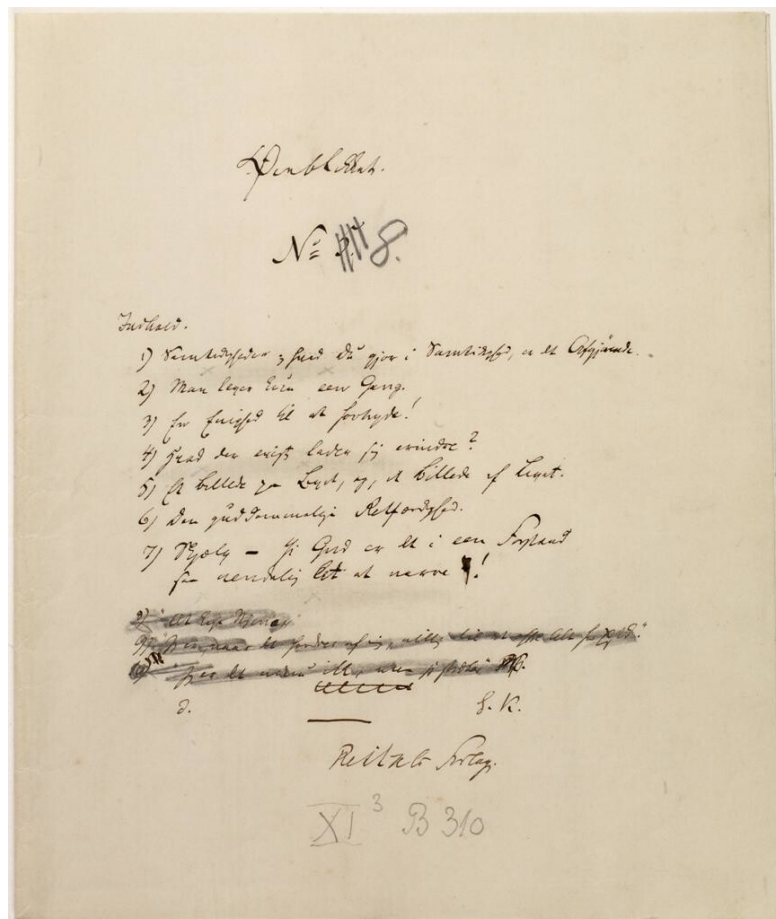 Øieblikket.
No 8.
Indhold.
1) Samtidigheden; hvad Du gjør i Samtidighed, er det Afgjørende.
2) Man lever kun een Gang.
3) En Evighed til at fortryde!
4) Hvad der evigt lader sig erindre?
5) Et Billede paa Livet, og, et Billede af Livet.
6) Den guddommelige Retfærdighed.
7) Skjælv – thi Gud er det i een Forstand
saa uendelig let at narre!
8)
9)
S. K.
Reitzels Forlag.
XI 3 B 310